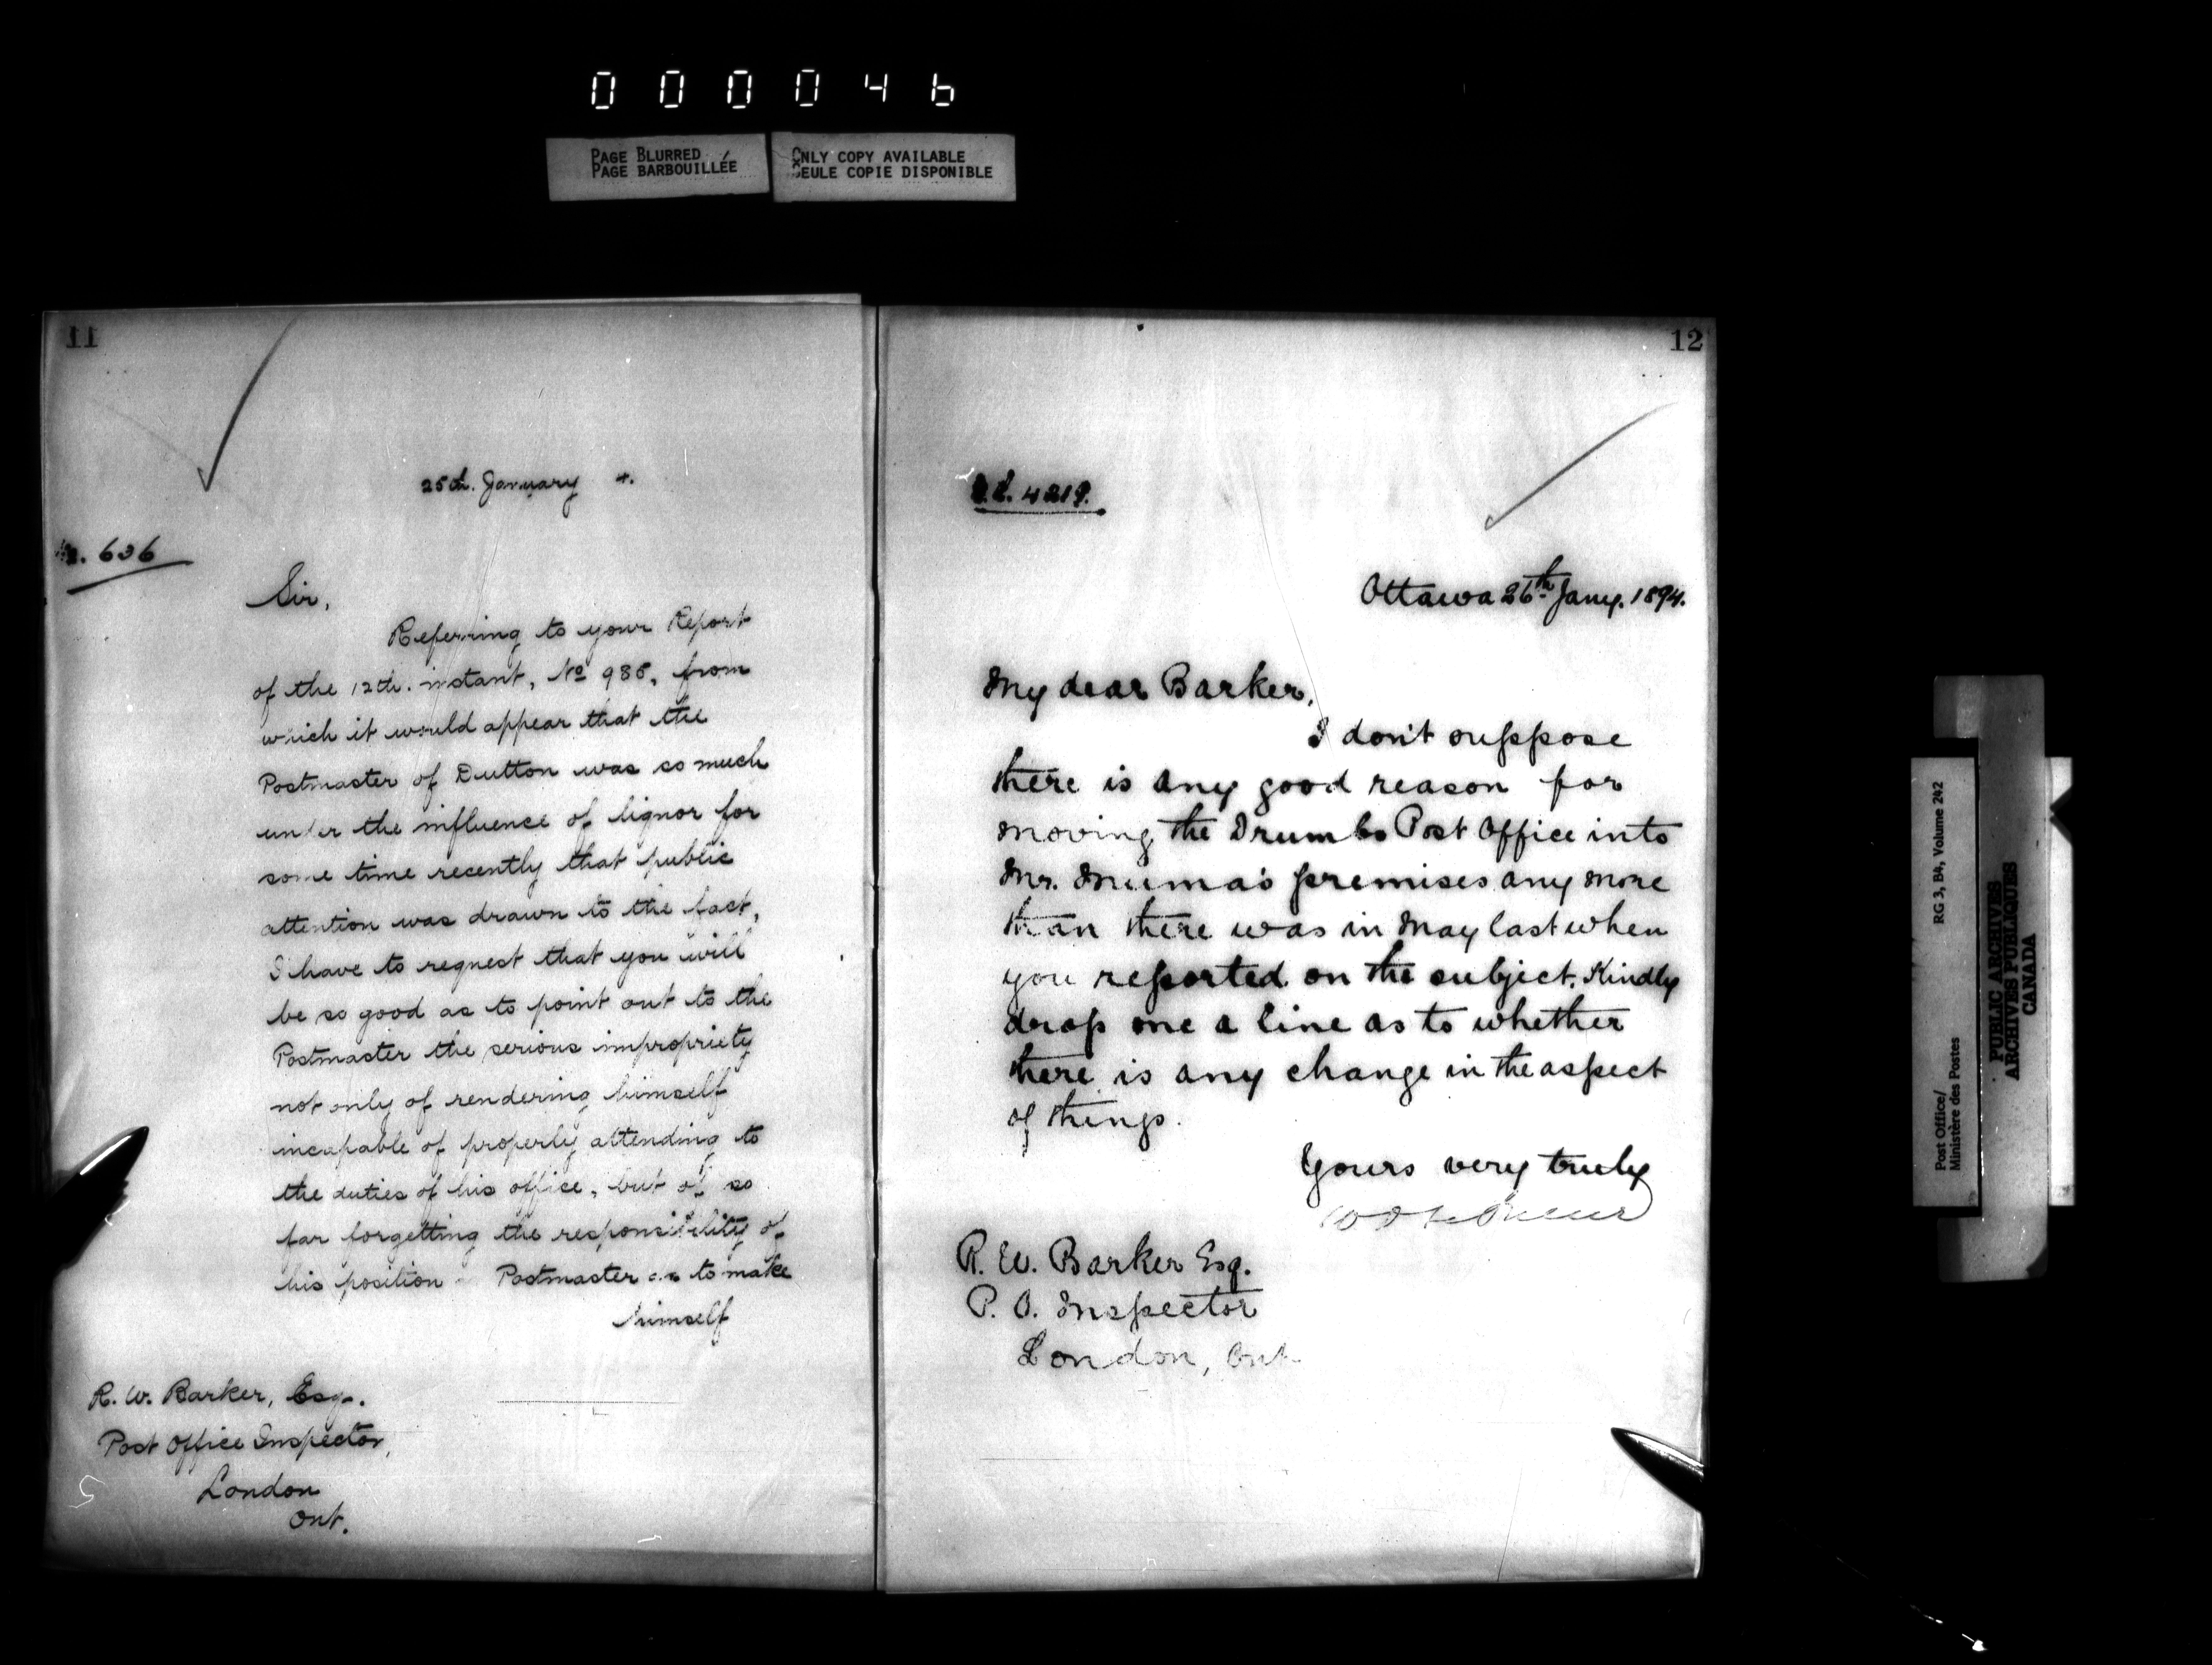 000046
PAGE BLURRED
PAGE BARBOUILLÉE
ONLY COPY AVAILABLE
SEULE COPIE DISPONIBLE
11
25th. January 4.
636
Sir,
Referring to your Report
of the 12th. instant, No 985, from
which it would appear that the
Postmaster of Dutton was so much
under the influence of liquor for
some time recently that public
attention was drawn to the fact,
I have to request that you will
be so good as to point out to the
Postmaster the serious impropriety
not only of rendering himself
incapable of properly attending to
the duties of his office, but of so
far forgetting the responsibility of
his position Postmaster as to make
himself
R. W. Barker, Esq.
Post Office Inspector,
London
Ont.
12
4219.
Ottawa 26th Jany. 1894.
My dear Barker,
I don't suppose
there is any good reason for
moving the Drumbo Post Office into
Mr. Muma's premises any more
than there was in May last when
you reported on the subject. Kindly
drop me a line as to whether
there is any change in the aspect
of things.
Yours very truly
R. W. Barker Esq.
P. O. Inspector
London, Ont.
Post Office/
Ministère des Postes
RG 3, B4, Volume 242
PUBLIC ARCHIVES
ARCHIVES PUBLIQUES
CANADA